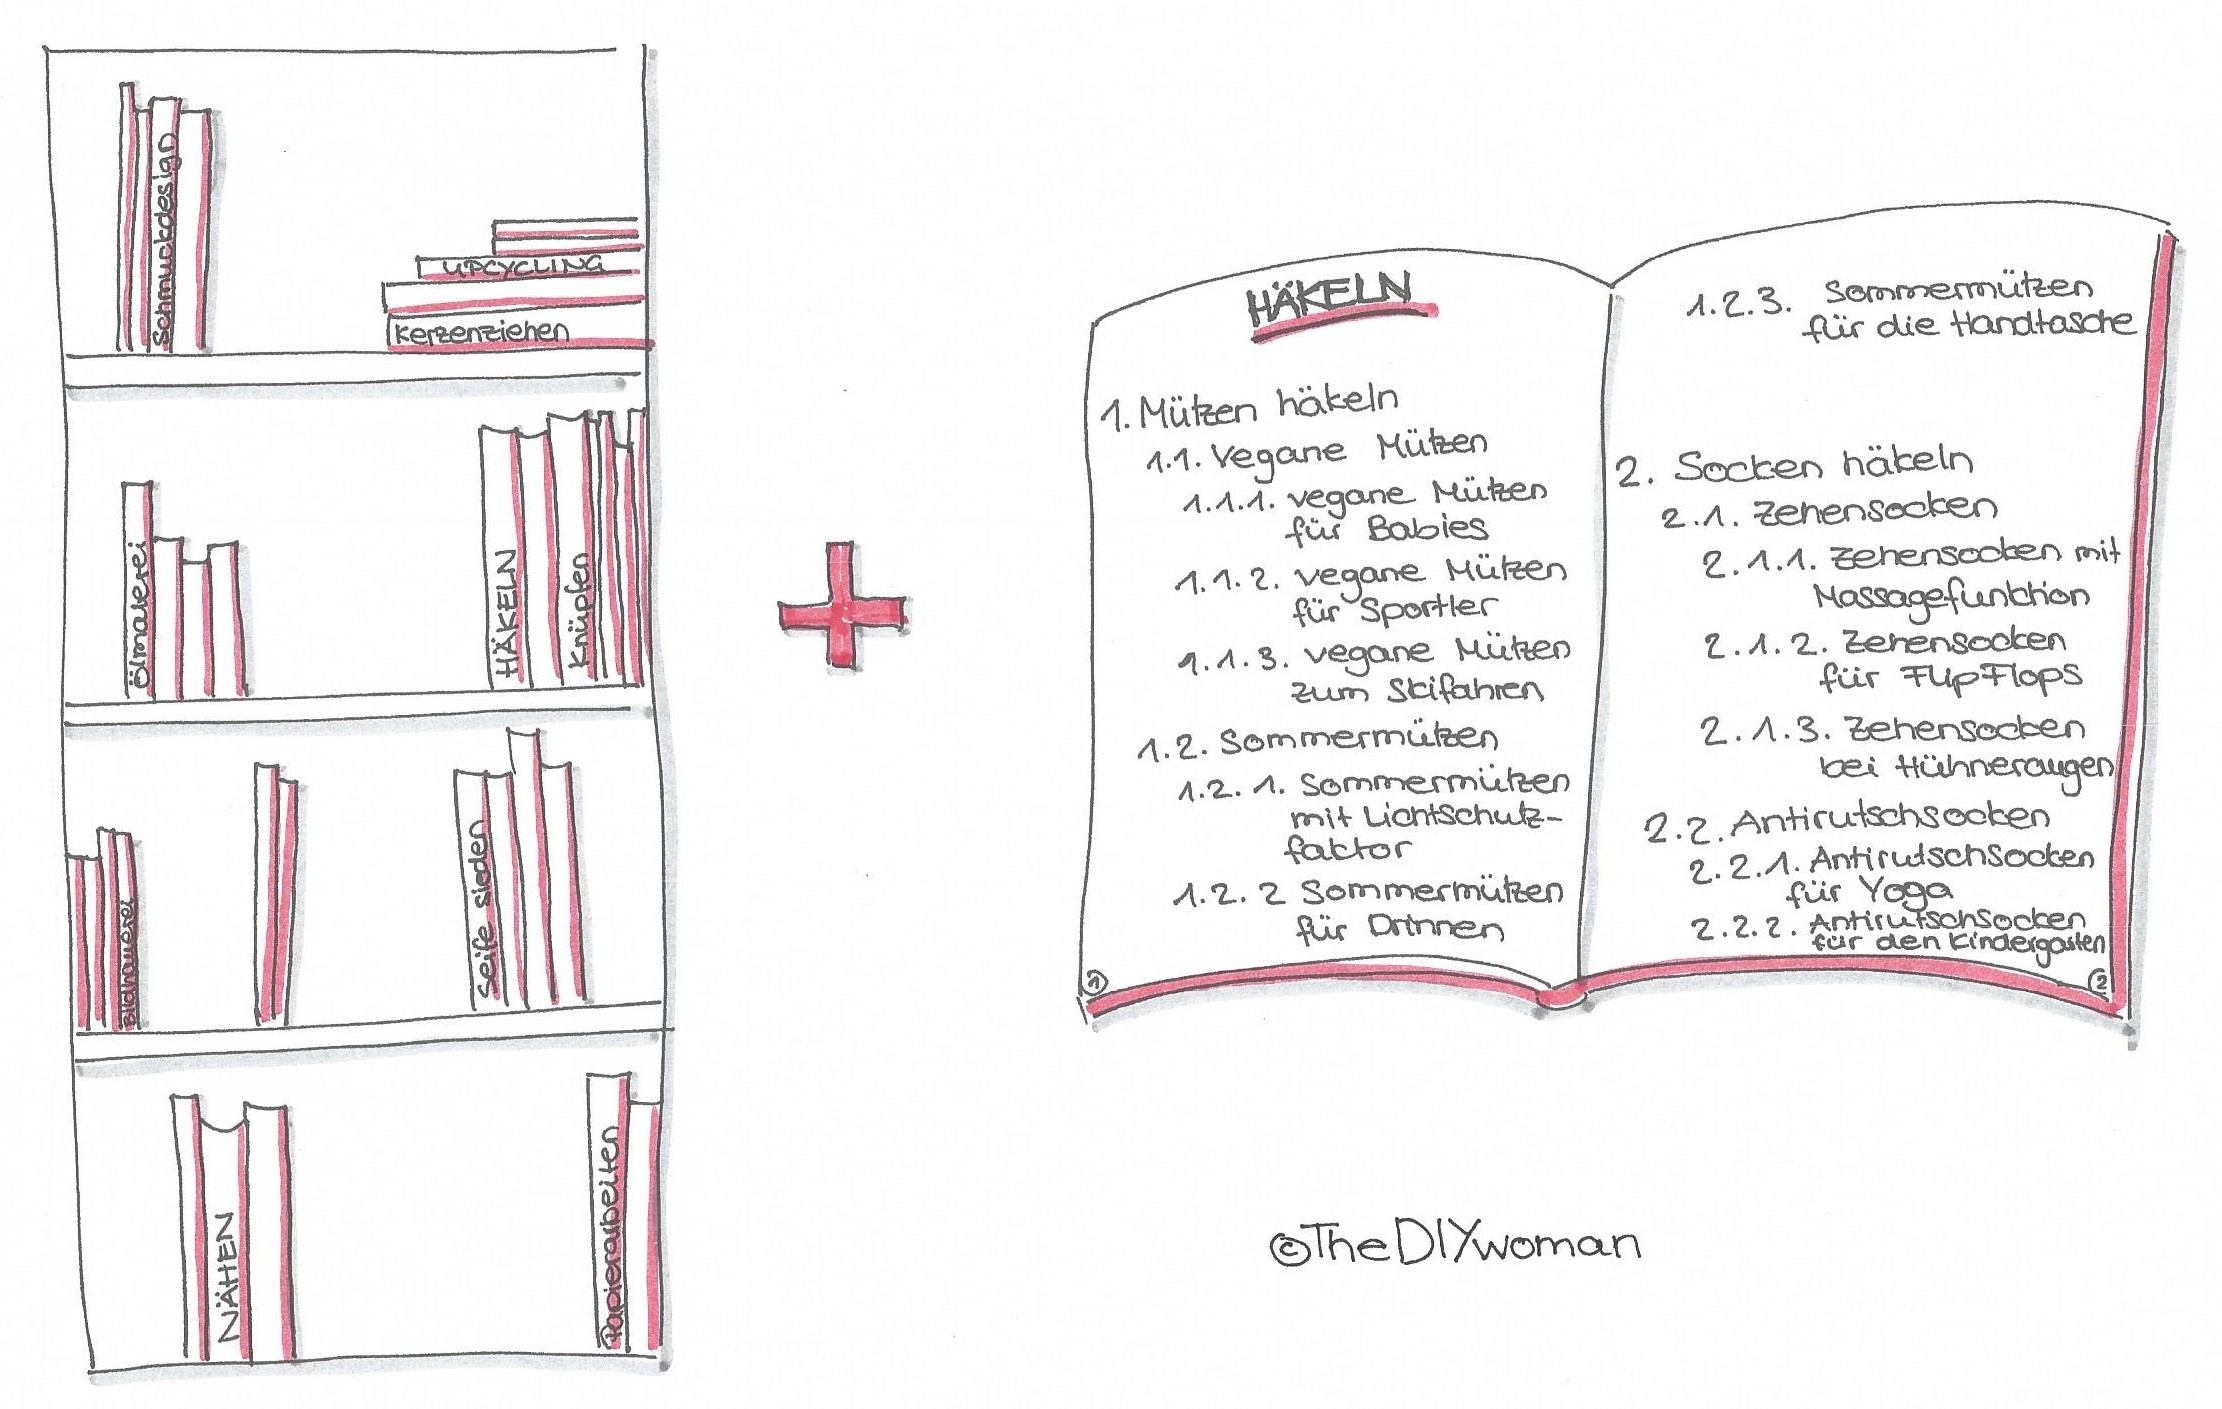 Schmuckdesign
UPCYCLING
Kerzenziehen
Ölmalerei
HÄKELN
Knüpfen
Bildhauerei
Seife sieden
NÄHEN
Papierarbeiten
HÄKELN
1. Mützen häkeln
1.1. Vegane Mützen
1.1.1. vegane Mützen
für Babies
1.1.2. vegane Mützen
für Sportler
1.1.3. vegane Mützen
zum Skifahren
1.2. Sommermützen
1.2.1. Sommermützen
mit Lichtschutz-
faktor
1.2.2 Sommermützen
für Drinnen
1
1.2.3. Sommermützen
für die Handtasche
2. Socken häkeln
2.1. Zehensocken
2.1.1. Zehensocken mit
Massagefunktion
2.1.2. Zehensocken
für FlipFlops
2.1.3. Zehensocken
bei Hühneraugen
2.2. Antirutschsocken
2.2.1. Antirutschsocken
für Yoga
2.2.2. Antirutschsocken
für den Kindergarten
2
©TheDIYwoman